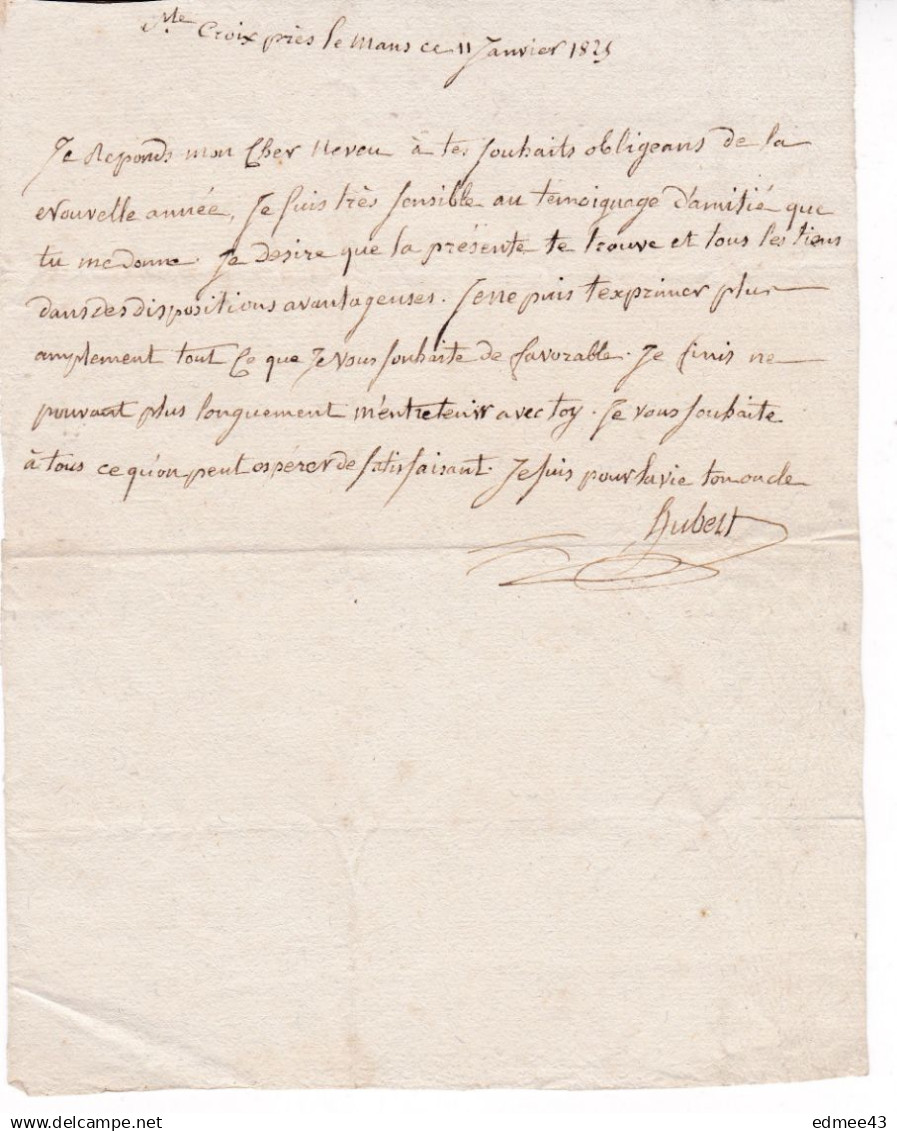 Ste Croix près le Mans ce 11 Janvier 1825
Je Reponds mon Cher Neveu à tes souhaits obligeans de la
Nouvelle année, Je suis très sensible au témoignage d'amitié que
tu me donne. Je desire que la présente te trouve et tous les tiens
dans des dispositions avantageuses. Je ne puis t'exprimer plus
amplement tout Ce que Je vous souhaite de favorable. Je finis ne
pouvant plus longuement m'entretenir avec toy. Je vous souhaite
à tous ce qu'on peut espérer de satisfaisant. Je suis pour la vie ton oncle
hubert
edmee43